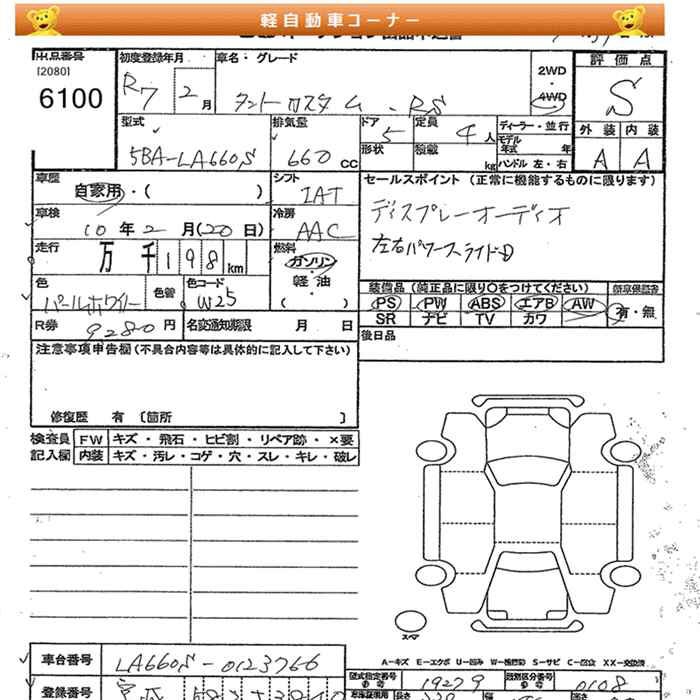 軽自動車コーナー
出品番号
[2080]
6100
初度登録年月
R7 2月
車名・グレード
タントカスタム RS
2WD
4WD
評価点
S
外装 内装
A A
型式
5BA-LA660S
排気量
660 CC
ドア
5
形状
定員
4人
積載
kg
ディーラー・並行
モデル年式 年
ハンドル 左・右
車歴
自家用・( )
シフト
IAT
セールスポイント (正常に機能するものに限ります)
ディスプレーオーディオ
左右パワースライドD
車検
10年2月(20日)
冷房
AAC
走行
万千198km
燃料
ガソリン
・
軽油
・
( )
色
パールホワイト
色替
色コード
W25
装備品 (純正品に限り○をつけてください)
PS PW ABS エアB AW
SR ナビ TV カワ
新車保証書
有・無
R券
9280円
名変通知期限 月 日
後日品
注意事項申告欄(不具合内容等は具体的に記入して下さい)
修復歴 有 〔箇所 〕
検査員記入欄
FW キズ・飛石・ヒビ割・リペア跡・×要
内装 キズ・汚レ・コゲ・穴・スレ・キレ・破レ
スペア
A-キズ E-エクボ U-凹み W-補修跡 S-サビ C-腐食 XX-交換済
車台番号
LA660S-0123766
型式指定番号
19279
類別区分番号
0108
登録番号
長さ
幅
高さ